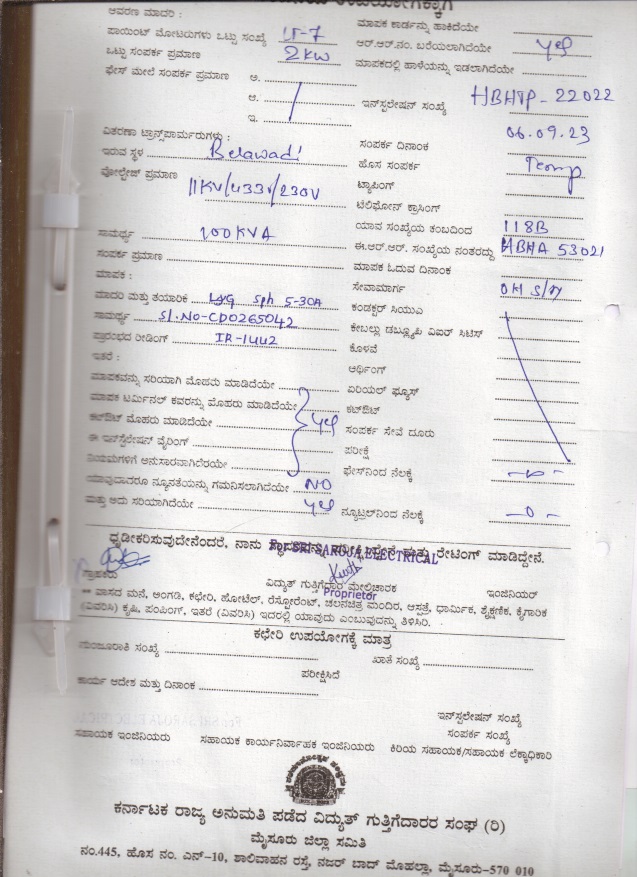 ಆವರಣ ಮಾದರಿ : ಮಾಪಕ ಕಾರ್ಡನ್ನು ಹಾಕಿದೆಯೇ
ಪಾಯಿಂಟ್ ಮೋಟರುಗಳು ಒಟ್ಟು ಸಂಖ್ಯೆ LT-7 ಆರ್.ಆರ್.ನಂ. ಬರೆಯಲಾಗಿದೆಯೇ yes
ಒಟ್ಟು ಸಂಪರ್ಕ ಪ್ರಮಾಣ 2KW ಮಾಪಕದಲ್ಲಿ ಹಾಳೆಯನ್ನು ಇಡಲಾಗಿದೆಯೇ
ಫೇಸ್ ಮೇಲೆ ಸಂಪರ್ಕ ಪ್ರಮಾಣ ಅ.
ಆ. ಇನ್‌ಸ್ಟಲೇಷನ್ ಸಂಖ್ಯೆ HBHTP-22022
ಇ.
ವಿತರಣಾ ಟ್ರಾನ್ಸ್‌ಪಾರ್ಮರುಗಳು : ಸಂಪರ್ಕ ದಿನಾಂಕ 06.09.23
ಇರುವ ಸ್ಥಳ Belawadi ಹೊಸ ಸಂಪರ್ಕ Temp
ವೋಲ್ಟೇಜ್ ಪ್ರಮಾಣ 11KV/433V/230V ಟ್ಯಾಪಿಂಗ್
ಟೆಲಿಫೋನ್ ಕ್ರಾಸಿಂಗ್
ಯಾವ ಸಂಖ್ಯೆಯ ಕಂಬದಿಂದ 118B
ಸಾಮರ್ಥ್ಯ 100KVA ಈ.ಆರ್.ಆರ್. ಸಂಖ್ಯೆಯ ನಂತರದ್ದು HBHA 53021
ಸಂಪರ್ಕ ಪ್ರಮಾಣ ಮಾಪಕ ಓದುವ ದಿನಾಂಕ
ಮಾಪಕ : ಸೇವಾಮಾರ್ಗ OH S/M
ಮಾದರಿ ಮತ್ತು ತಯಾರಿಕೆ L&G Sph 5-30A ಕಂಡಕ್ಟರ್ ಸಿಯುಎ
ಸಾಮರ್ಥ್ಯ Sl.No-CD0265042 ಕೇಬಲ್ಲು ಡಬ್ಲ್ಯೂಪಿ ವಿಐರ್ ಸಿಟಿಸ್
ಪ್ರಾರಂಭದ ರೀಡಿಂಗ್ IR-1442 ಕೊಳವೆ
ಇತರೆ : ಆರ್ಥಿಂಗ್
ಮಾಪಕವನ್ನು ಸರಿಯಾಗಿ ಮೊಹರು ಮಾಡಿದೆಯೇ ಏರಿಯಲ್ ಫ್ಯೂಸ್
ಮಾಪಕ ಟರ್ಮಿನಲ್ ಕವರನ್ನು ಮೊಹರು ಮಾಡಿದೆಯೇ ಕಟ್‌ಔಟ್
ಕಟ್‌ಔಟ್ ಮೊಹರು ಮಾಡಿದೆಯೇ yes ಸಂಪರ್ಕ ಸೇವೆ ದೂರು
ಈ ಇನ್‌ಸ್ಟೆಲೇಷನ್ ವೈರಿಂಗ್ ಪರೀಕ್ಷೆ
ನಿಯಮಗಳಿಗೆ ಅನುಸಾರವಾಗಿದೆಯೇ ಫೇಸ್‌ನಿಂದ ನೆಲಕ್ಕೆ -0-
ಯಾವುದಾದರೂ ನ್ಯೂನತೆಯನ್ನು ಗಮನಿಸಲಾಗಿದೆಯೇ NO
ಮತ್ತು ಅದು ಸರಿಯಾಗಿದೆಯೇ yes ನ್ಯೂಟ್ರಲ್‌ನಿಂದ ನೆಲಕ್ಕೆ -0-
ಧೃಡೀಕರಿಸುವುದೇನೆಂದರೆ, ನಾನು ಮತ್ತು ರೇಟಿಂಗ್ ಮಾಡಿದ್ದೇನೆ.
For SRI SAROJA ELECTRICAL
ಗ್ರಾಹಕರು ವಿದ್ಯುತ್ ಗುತ್ತಿಗೆದಾರ ಮೇಲಿಚಾರಕ ಇಂಜಿನಿಯರ್
Proprietor
** ವಾಸದ ಮನೆ, ಅಂಗಡಿ, ಕಛೇರಿ, ಹೋಟೆಲ್, ರೆಸ್ಟೋರೆಂಟ್, ಚಲನಚಿತ್ರ ಮಂದಿರ, ಆಸ್ಪತ್ರೆ, ಧಾರ್ಮಿಕ, ಶೈಕ್ಷಣಿಕ, ಕೈಗಾರಿಕ
(ವಿವರಿಸಿ) ಕೃಷಿ, ಪಂಪಿಂಗ್, ಇತರೆ (ವಿವರಿಸಿ) ಇದರಲ್ಲಿ ಯಾವುದು ಎಂಬುವುದನ್ನು ತಿಳಿಸಿರಿ.
ಕಛೇರಿ ಉಪಯೋಗಕ್ಕೆ ಮಾತ್ರ
ಮಂಜೂರಾತಿ ಸಂಖ್ಯೆ ಖಾತೆ ಸಂಖ್ಯೆ
ಪರೀಕ್ಷಿಸಿದೆ
ಕಾರ್ಯ ಆದೇಶ ಮತ್ತು ದಿನಾಂಕ
ಇನ್‌ಸ್ಟಲೇಷನ್ ಸಂಖ್ಯೆ
ಸಂಪರ್ಕ ಸಂಖ್ಯೆ
ಸಹಾಯಕ ಇಂಜಿನಿಯರು ಸಹಾಯಕ ಕಾರ್ಯನಿರ್ವಾಹಕ ಇಂಜಿನಿಯರು ಕಿರಿಯ ಸಹಾಯಕ/ಸಹಾಯಕ ಲೆಕ್ಕಾಧಿಕಾರಿ
ಕರ್ನಾಟಕ ರಾಜ್ಯ ಅನುಮತಿ ಪಡೆದ ವಿದ್ಯುತ್ ಗುತ್ತಿಗೆದಾರರ ಸಂಘ (ರಿ)
ಮೈಸೂರು ಜಿಲ್ಲಾ ಸಮಿತಿ
ನಂ.445, ಹೊಸ ನಂ. ಎನ್-10, ಶಾಲಿವಾಹನ ರಸ್ತೆ, ನಜರ್ ಬಾದ್ ಮೊಹಲ್ಲಾ, ಮೈಸೂರು-570 010